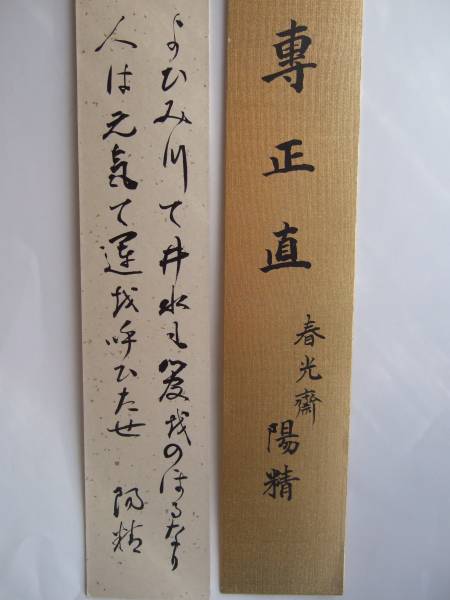 專正直
春光齋 陽精
よひみ川て井水も越のほるなり
人は元気て運越呼ひたせ 陽精